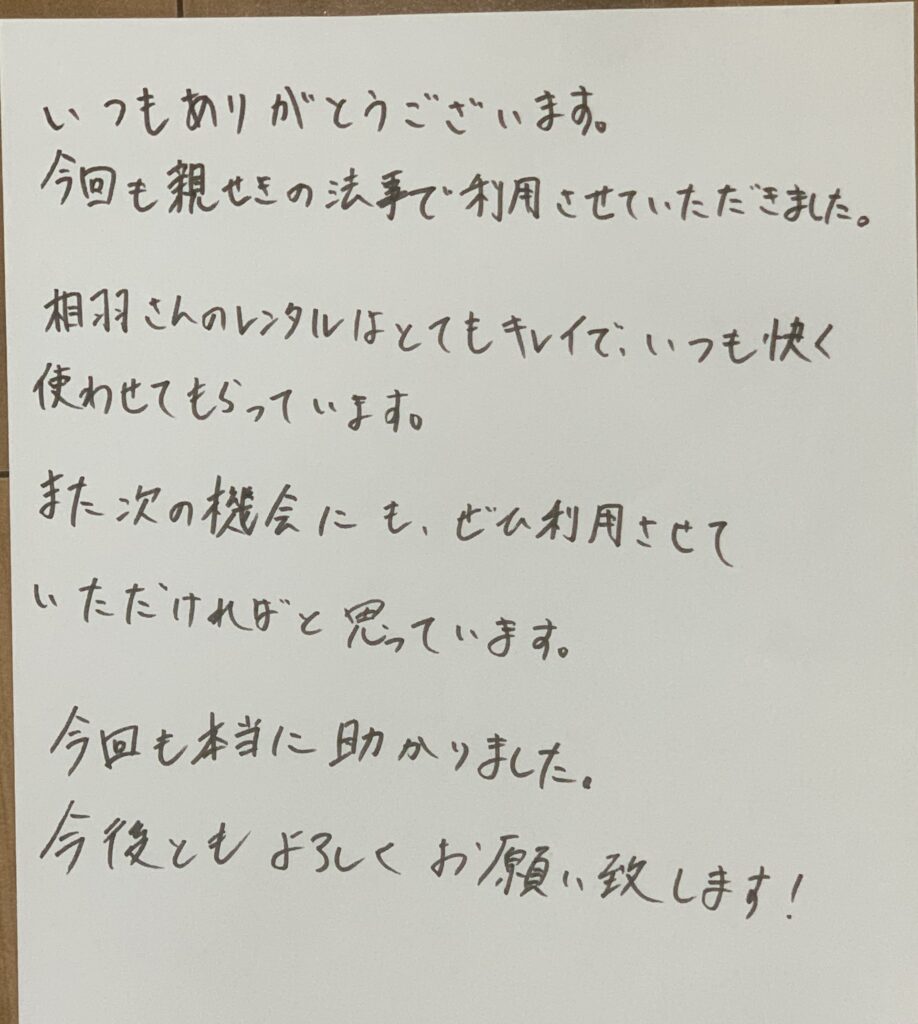 いつもありがとうございます。
今回も親せきの法事で利用させていただきました。
相羽さんのレンタルはとてもキレイで、いつも快く
使わせてもらっています。
また次の機会にも、ぜひ利用させて
いただければと思っています。
今回も本当に助かりました。
今後ともよろしくお願い致します!